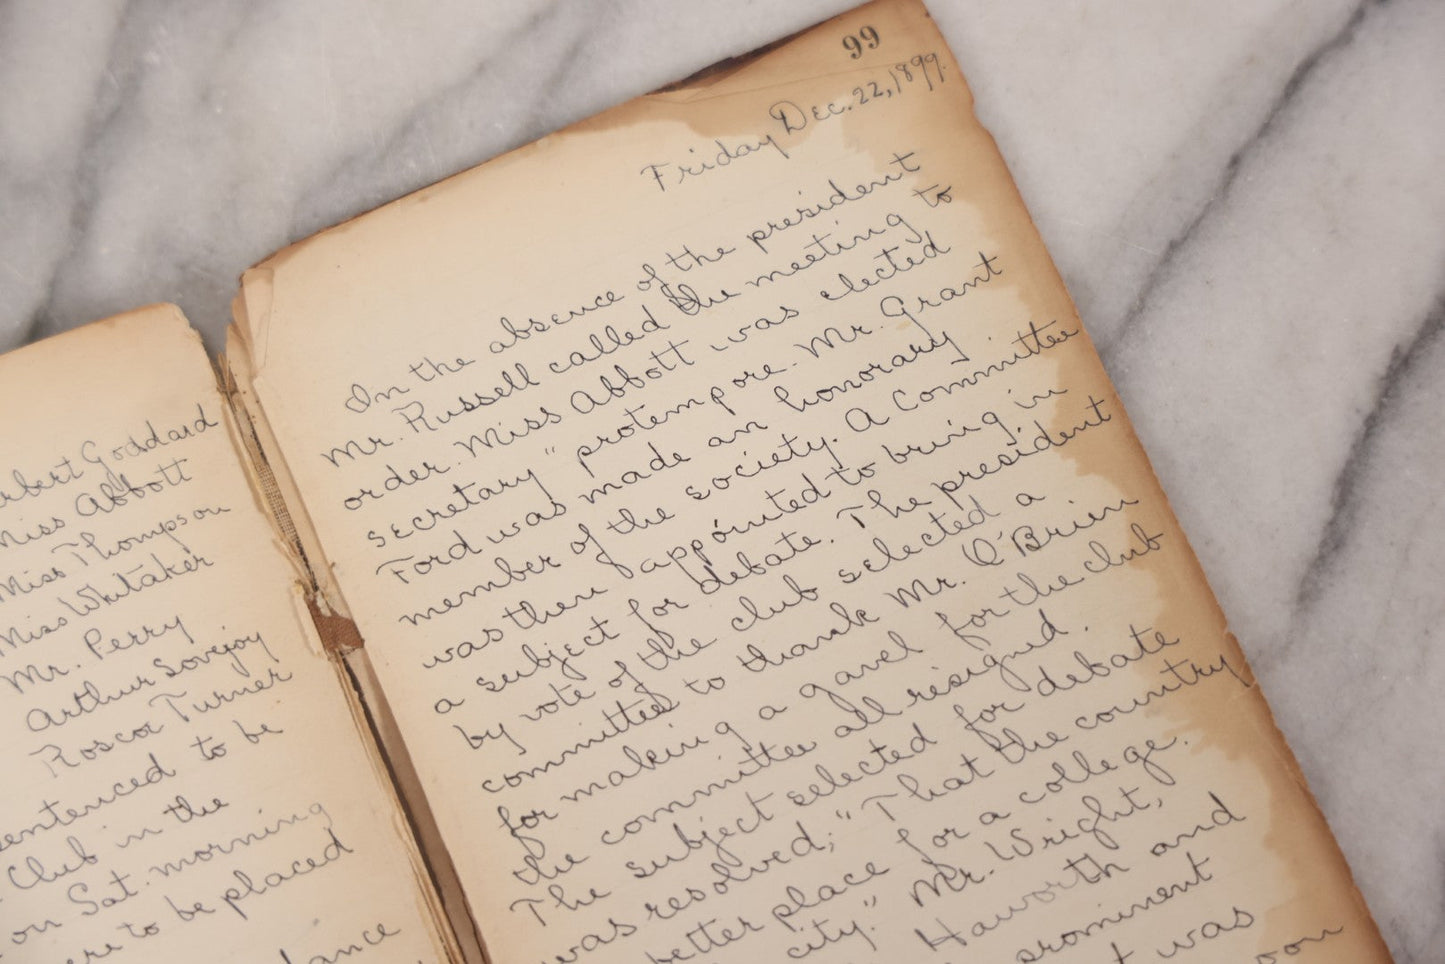 Goddard
Miss Abbott
Miss Thompson
Miss Whitaker
Mr. Perry
Arthur Lovejoy
Roscoe Turner
to be
Club in the
on Sat. morning
to be placed
99
Friday Dec. 22, 1899.
In the absence of the president
Mr. Russell called the meeting to
order. Miss Abbott was elected
secretary "protempore. Mr. Grant
Ford was made an honorary
member of the society. A Committee
was then appointed to bring in
a subject for debate. The president
by vote of the club selected a
committee to thank Mr. O'Brien
for making a gavel for the club
the committee all resigned.
The subject selected for debate
was resolved; "That the country
better place for a college.
city." Mr. Wright,
Haworth and
prominent
was